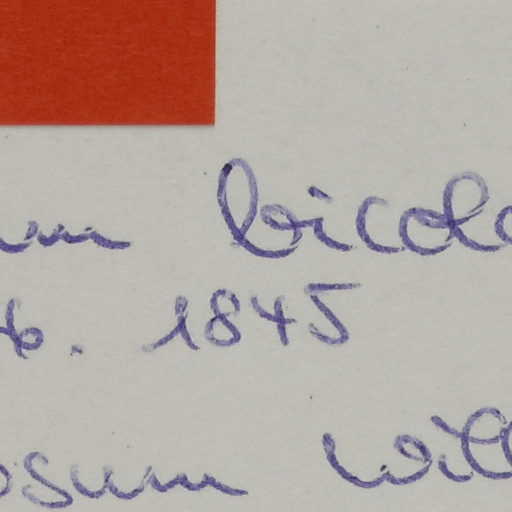 um bicolo
b. 1845
osum will